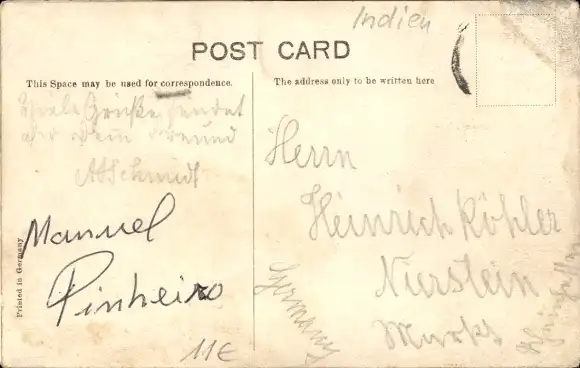 Indien
POST CARD
This Space may be used for correspondence.
The address only to be written here
Viele Grüße sendet
dir dein Freund
A Schmidt
Herrn
Heinrich Köhler
Nierstein
Markt
Rheinhessen
Germany
Manuel
Pinheiro
11€
Printed in Germany